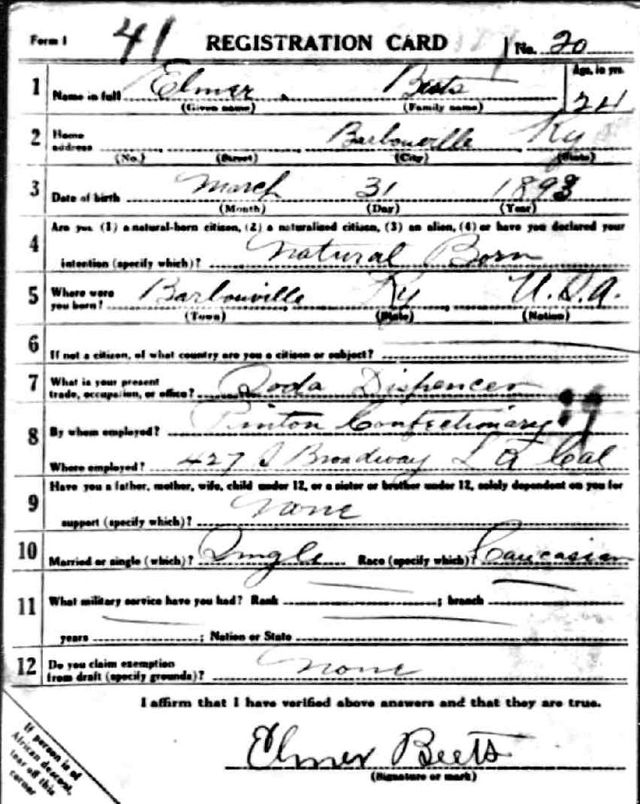 Form 1 41 REGISTRATION CARD No. 20
1 Name in full Elmer Beets Age, in yrs. 24
(Given name) (Family name)
2 Home address Barbouville Ky
(No.) (Street) (City) (State)
3 Date of birth March 31 1893
(Month) (Day) (Year)
4 Are you (1) a natural-born citizen, (2) a naturalized citizen, (3) an alien, (4) or have you declared your
intention (specify which)? Natural Born
5 Where were you born? Barbouville Ky U.S.A.
(Town) (State) (Nation)
6 If not a citizen, of what country are you a citizen or subject?
7 What is your present trade, occupation, or office? Soda Dispencer
8 By whom employed? Confectionary
Where employed? 427 S Broadway L A Cal
9 Have you a father, mother, wife, child under 12, or a sister or brother under 12, solely dependent on you for
support (specify which)? None
10 Married or single (which)? Single Race (specify which)? Caucasian
11 What military service have you had? Rank ; branch
years ; Nation or State
12 Do you claim exemption from draft (specify grounds)? None
I affirm that I have verified above answers and that they are true.
Elmer Beets
(Signature or mark)
If person is of
African descent,
tear off this
corner